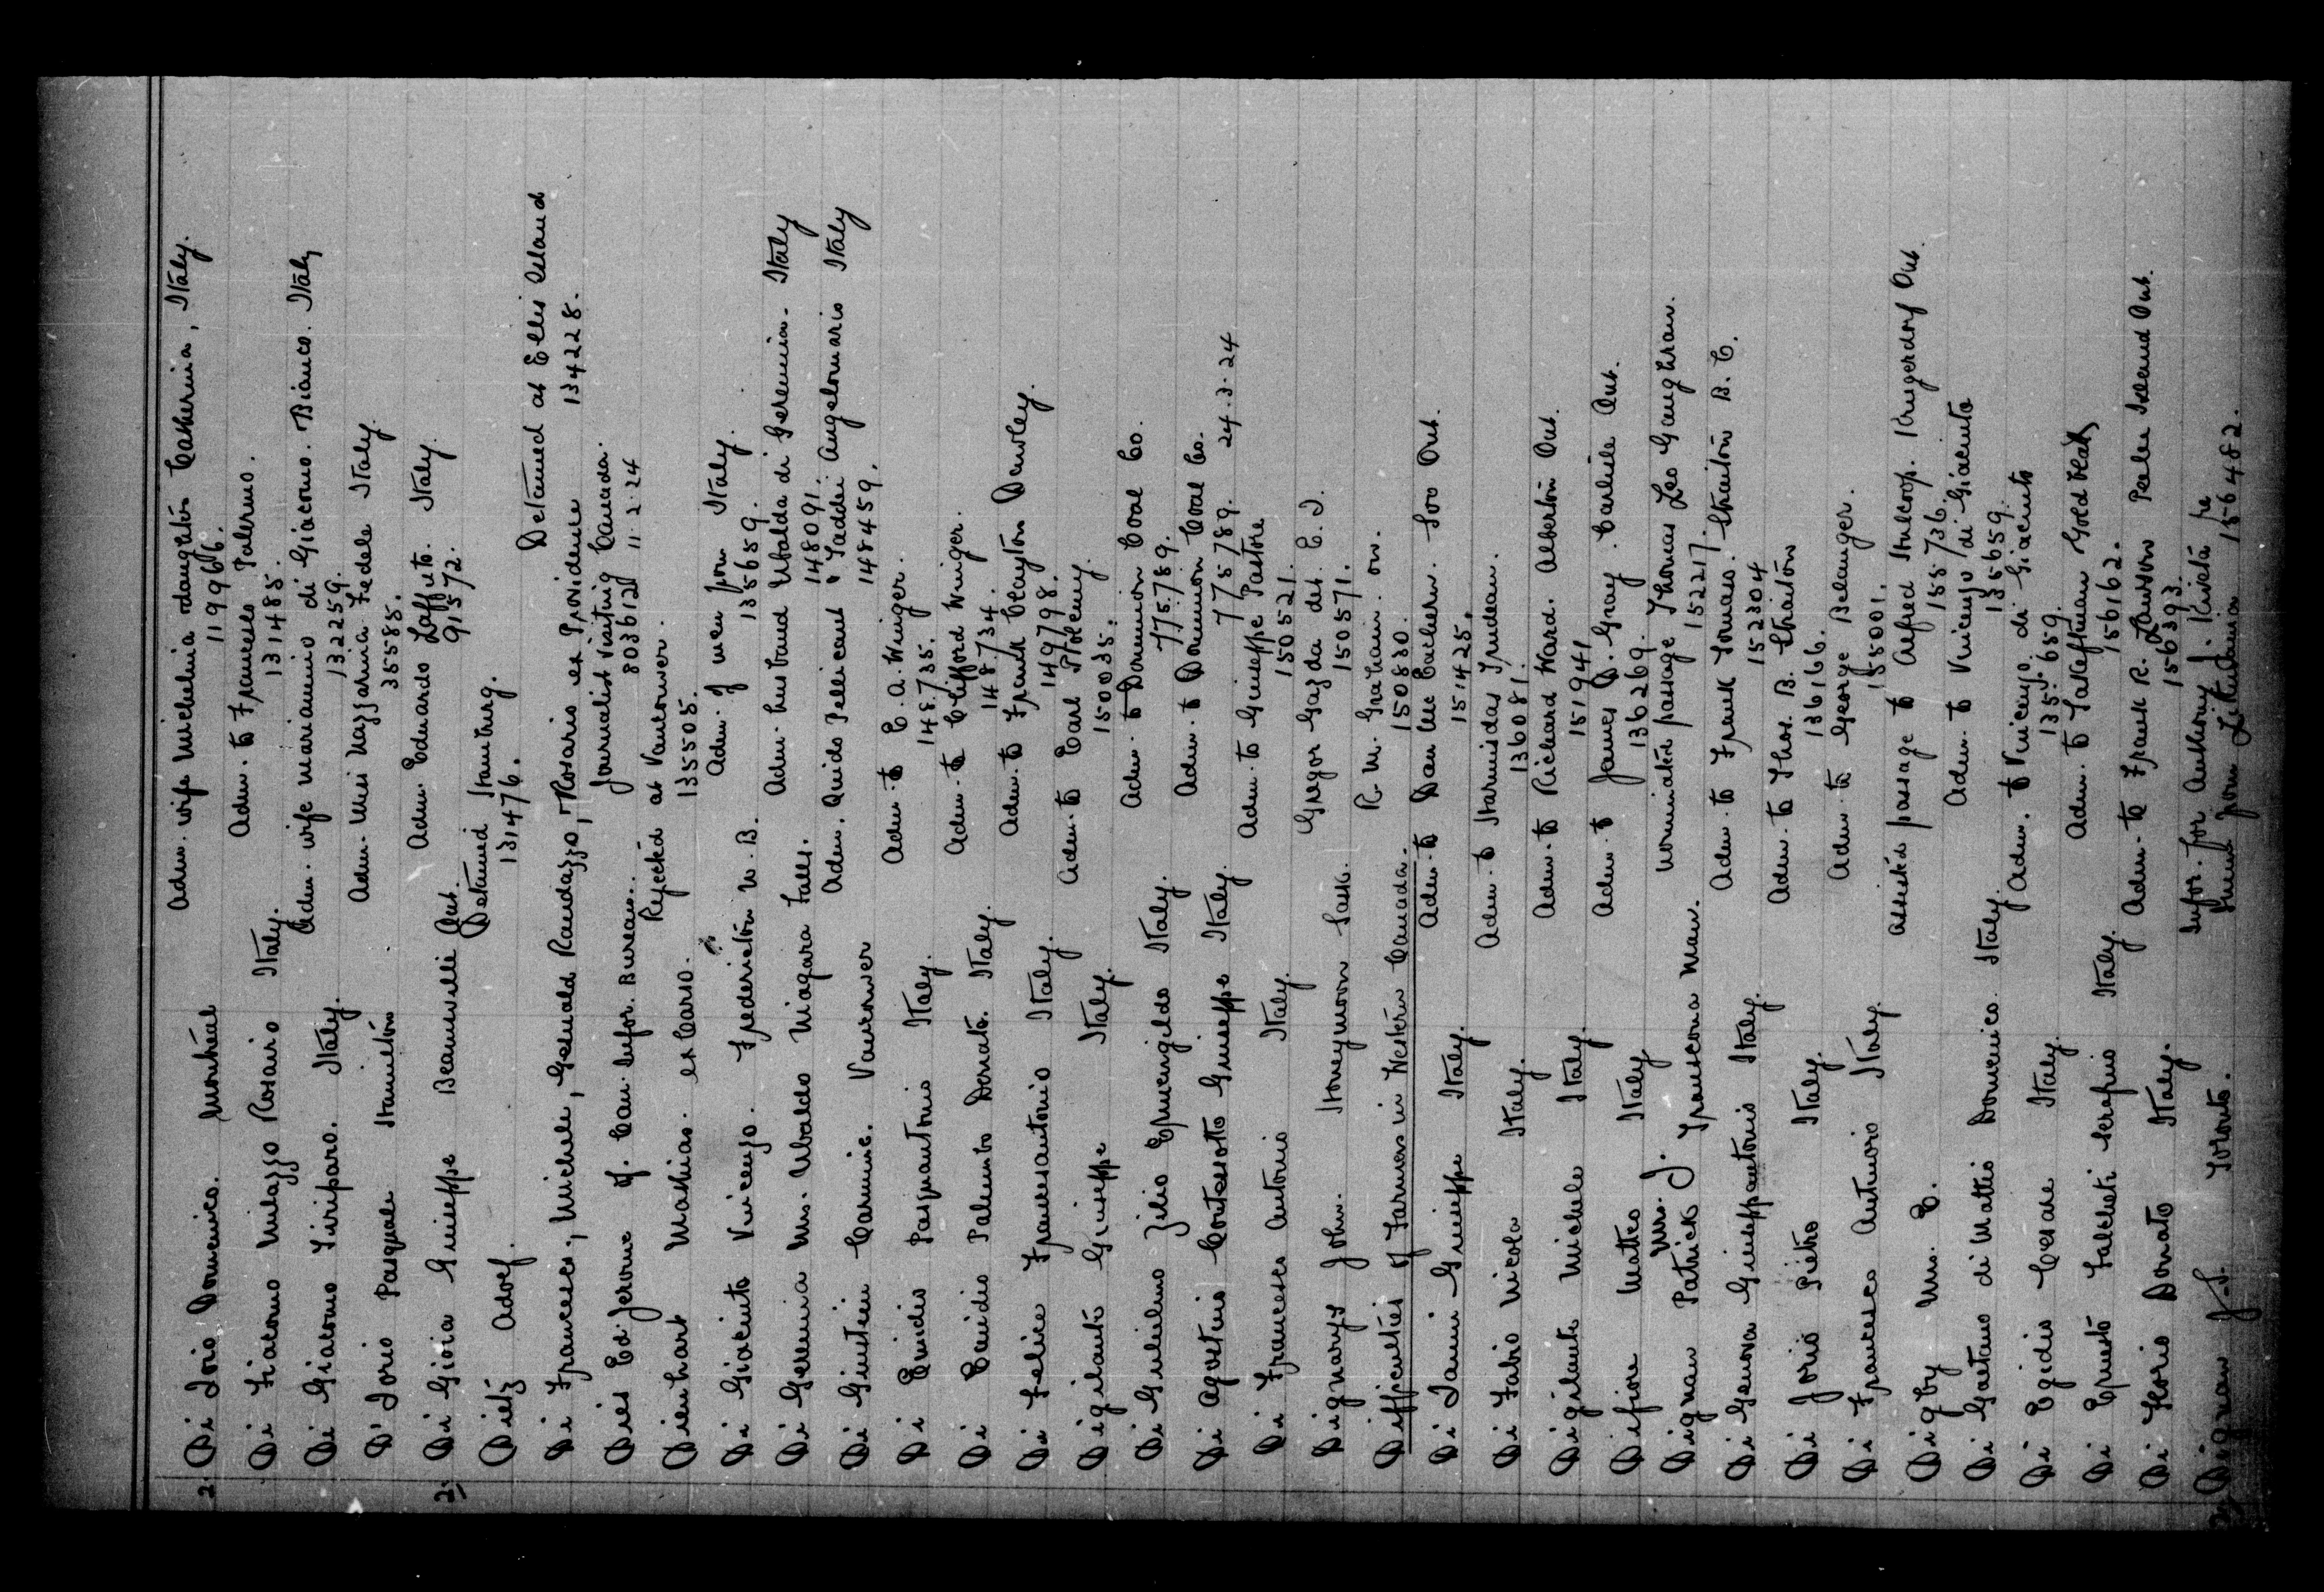 2. Di Iorio Domenico. Montreal Adm. wife Michelina daughter Catherina, Italy.
119966.
Di Giacomo Milazzo Rosario Italy. Adm. to Francesco Palermo.
131485.
Di Giacomo Tiriparo. Italy. Adm. wife Mariannino di Giacomo. Bianco. Italy
132259.
D'Iorio Pasquale Hamilton Adm. Mini Nazzarina Fedele Italy
35585.
2. Di Gioia Giuseppe Beamsville Ont. Adm. Eduardo Zaffuto. Italy.
91572.
Dietz Adolf. Detained Hamburg.
131476.
Di Francesco, Michele, Gesuald Randazzo, Rosario ex Providence Detained at Ellis Island
134228.
Dies Ed. Jerome of. Can. Infor. Bureau. Journalist visiting Canada.
803612 11.2.24
Dienhart Mathias. ex Carso. Rejected at Vancouver.
135505.
Di Giacinto Vincenzo. Fredericton N.B. Adm. of men from Italy.
135659.
Di Geremia Mrs. Ubaldo Niagara Falls. Adm. husband Ubaldo di Geremia. Italy
148091.
Di Giustini Carmine. Vancouver Adm. Guido Pellicani & Taddei Angelomaris Italy
148459.
Di Emidio Pasquantonio Italy. Adm. to E. A. Winger.
148735.
Di Emidio Palumbo Donato. Italy. Adm. to Clifford Winger.
148734.
Di Felice Francesantonio Italy. Adm. to Frank Clayton Dawley.
149798.
Digilante Giuseppe Italy. Adm. to Earl Ptolemy.
150035.
Di Guilielmo Zilio Ermenigildo Italy. Adm. to Dominion Coal Co.
775789.
Di Agostinio Contessotto Giuseppe Italy. Adm. to Dominion Coal Co.
775789. 24.3.24
Di Francesco Antonio Italy. Adm. to Giuseppe Pastore
150521.
Dignarys John. Honeymoon Sask. Gregor Gazda det. E.I.
150571.
Difficulties of Farmers in Western Canada. R. M. Graham. on.
150830.
Di Ianni Giuseppe Italy. Adm. to Dan McEachern. Soo Ont.
151425.
Di Fabio Nicola Italy. Adm. to Harmidas Trudeau.
136081.
Digilante Michele Italy. Adm. to Richard Ward. Alberton Ont.
151941
Difiore Matteo Italy Adm. to James D. Gray. Carlisle Ont.
136269.
Dignan Mrs. Patrick J. Transcona Man. nominated passage Thomas Leo Gaughran.
152217.
Di Genova Giuseppantonio Italy. Adm. to Frank Tomaso. Straiton B.C.
152304
Di Jorio Pietro Italy. Adm. to Thos. B. Straiton
136166.
Di Francesco Antonio Italy. Adm. to George Belanger.
155001.
Digby Wm. E. assisted passage to Alfred Stulcop. Krugerdorf Ont.
155736.
Di Gaetano di Mattio Domenico. Italy. Adm. to Vincenzo di Giacinto
135659.
Di Egidio Cesare Italy. Adm. to Vincenzo di Giacinto
135659.
Di Ernesto Falcheti Serafino Italy. Adm. to
156162.
Di Florio Donato Italy. Adm. to Frank R. Lawson Pealee Island Ont.
156393.
Dignan J.S. Toronto. Infor. for Anthony J. Kiveta re
friend from Lithuania 156482.